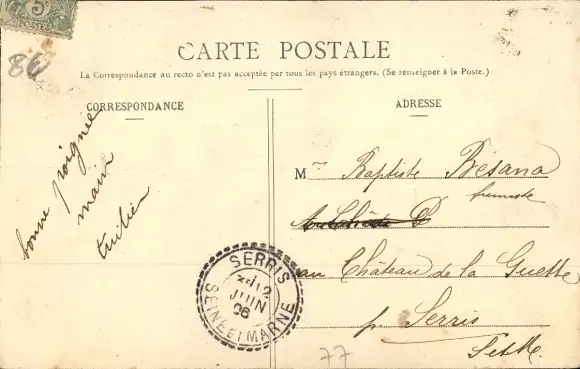 5
86
CARTE POSTALE
La Correspondance au recto n'est pas acceptée par tous les pays étrangers. (Se renseigner à la Poste.)
CORRESPONDANCE
bonne poignée
main
ADRESSE
M Baptiste Bésana
fumiste
au Château de la Guette
pr Serris
S et M.
SERRIS
12
JUIN
06
SEINE ET MARNE
77